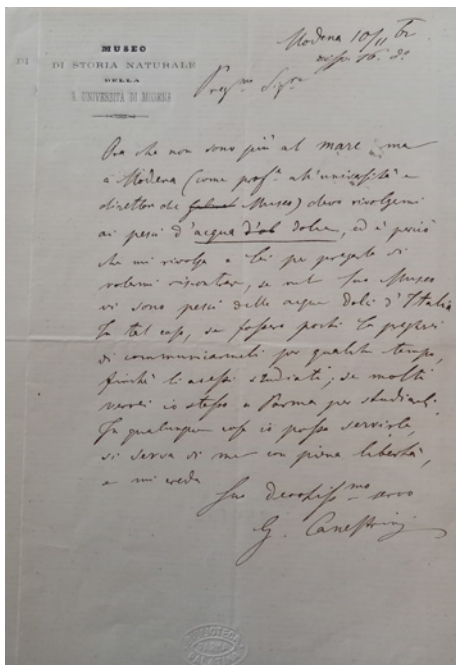 MUSEO
DI DI STORIA NATURALE
DELLA
R. UNIVERSITÀ DI MODENA
Modena 10/11
Preg.mo Sig.re
Ora che non sono più al mare ma
a Modena (come prof.e all'università e
direttore del Museo) devo rivolgermi
ai pesci d'acqua dolce, ed è perciò
che mi rivolgo a Lei per pregarla di
volermi riscontrare, se nel suo Museo
vi sono pesci delle acque dolci d'Italia
In tal caso, se fossero pochi La pregherei
di communicarmeli per qualche tempo,
finché li avessi studiati; se molti
verrei io stesso a Parma per studiarli.
In qualunque cosa io possa servirla,
si serva di me con piena libertà,
e mi creda
Suo devotiss.mo servo
G. Canestrini
BIBLIOTECA